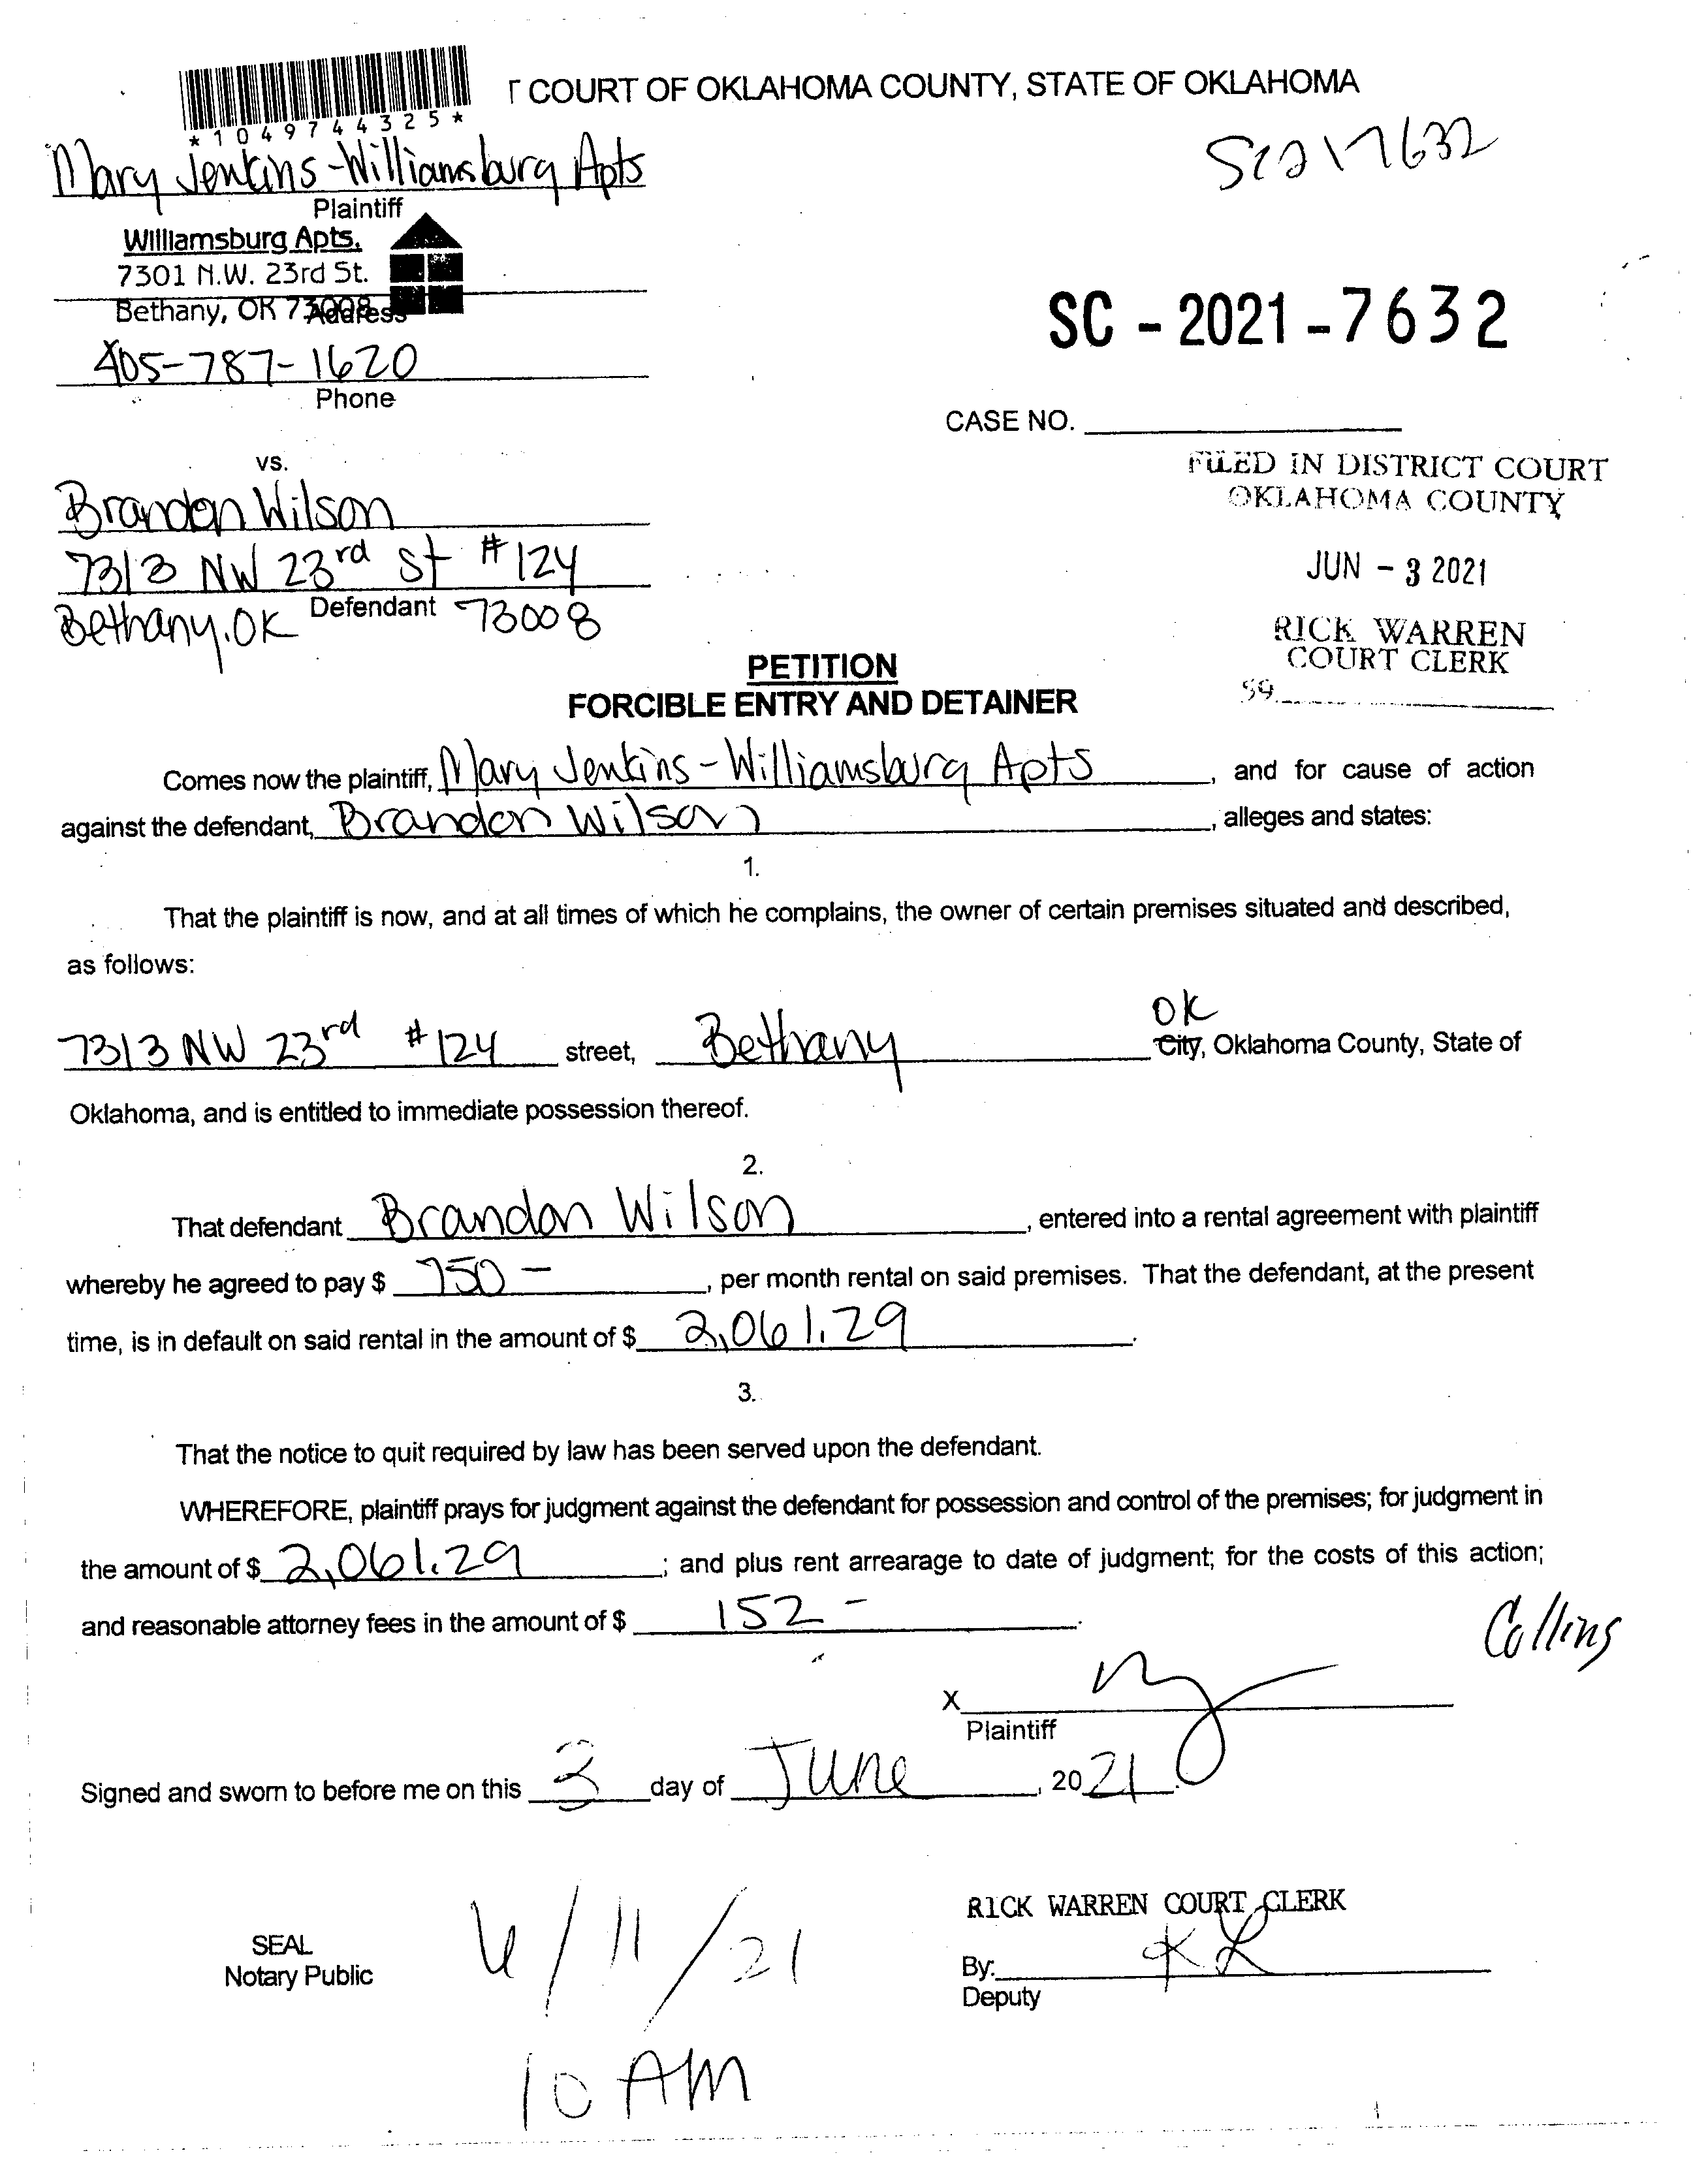 T COURT OF OKLAHOMA COUNTY, STATE OF OKLAHOMA
*1049744325*
Mary Jenkins-Williamsburg Apts
Plaintiff
Sc217632
Williamsburg Apts.
7301 N.W. 23rd St.
Bethany, OK 73008
Address
SC - 2021 - 7632
405-787-1620
Phone
CASE NO.
vs.
FILED IN DISTRICT COURT
OKLAHOMA COUNTY
Brandon Wilson
7313 NW 23rd St #124
JUN - 3 2021
Defendant
Bethany, OK 73008
RICK WARREN
COURT CLERK
59
PETITION
FORCIBLE ENTRY AND DETAINER
Comes now the plaintiff, Mary Jenkins-Williamsburg Apts, and for cause of action
against the defendant, Brandon Wilson, alleges and states:
1.
That the plaintiff is now, and at all times of which he complains, the owner of certain premises situated and described,
as follows:
OK
7313 NW 23rd #124 street, Bethany City, Oklahoma County, State of
Oklahoma, and is entitled to immediate possession thereof.
2.
That defendant Brandon Wilson, entered into a rental agreement with plaintiff
whereby he agreed to pay $ 750 -, per month rental on said premises. That the defendant, at the present
time, is in default on said rental in the amount of $ 2,061.29.
3.
That the notice to quit required by law has been served upon the defendant.
WHEREFORE, plaintiff prays for judgment against the defendant for possession and control of the premises; for judgment in
the amount of $ 2,061.29; and plus rent arrearage to date of judgment; for the costs of this action;
and reasonable attorney fees in the amount of $ 152 -.
Collins
X
Plaintiff
Signed and sworn to before me on this 3 day of June, 2021.
RICK WARREN COURT CLERK
SEAL
Notary Public
6/11/21
By: KL
Deputy
10 AM